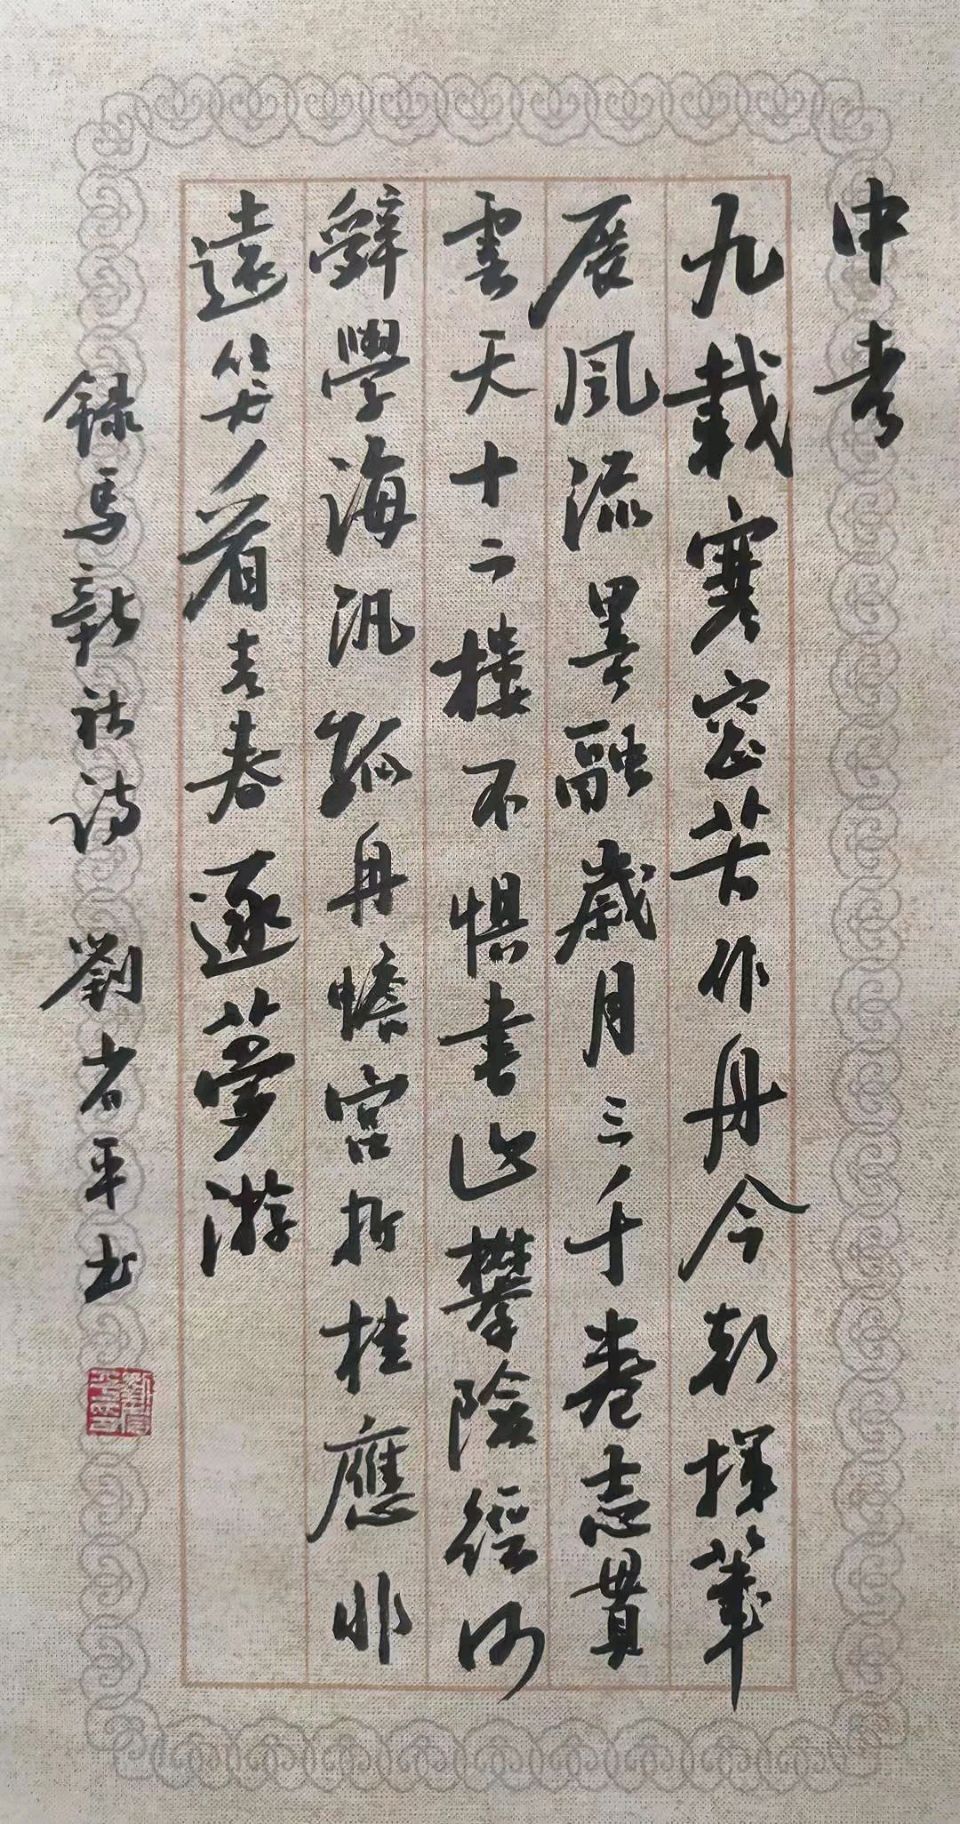 中考
九載寒窗苦作舟今朝揮筆
展風流墨融歲月三千卷志貫
雲天十二樓不懼書山攀險徑何
辭學海汎孤舟蟾宮折桂應非
遠笑看青春逐夢游
錄馬新社詩 劉省平书